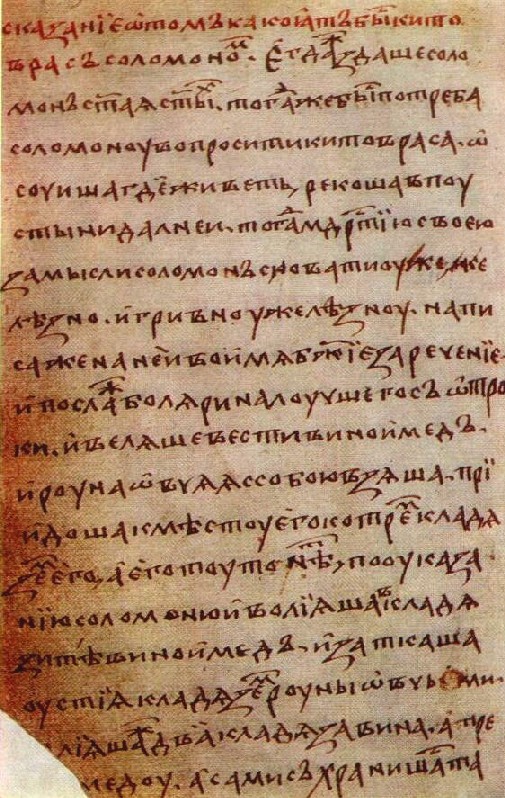 сказанїе ѿтомъ како ꙗтъ бы́ кито
врасъ соломоно. Егда здаше соло
монъ стаꙗ сты. тогда же бы потреба
соломоноу вопросити китовраса. ѡ
соуиша где живеть, рекоша в поу
стыни далней. тогда мдртїю своею
замысли соломонъ сковати оуже же
лѣзно. и гривноу желѣзноу. напи
са же на неи во имѧ бжїе зареченїе.
и посла болѧрина лоучшего съ ѡтро
ки. и велѧше вести вино и медъ.
и роуна ѡвчаꙗ с собою взѧша. прї
идоша к мѣстоу его ко тре кладѧ
зе его, а его тоуто нѣ, по оуказа
нїю соломоню и волїꙗша кладѧ
зи тѣ вино и медъ. и заткаша
оустїꙗ кладѧзе роуны ѡвчьми.
лїꙗша два кладѧзѧ вина. а тре
медоу. а сами съхранишасѧ